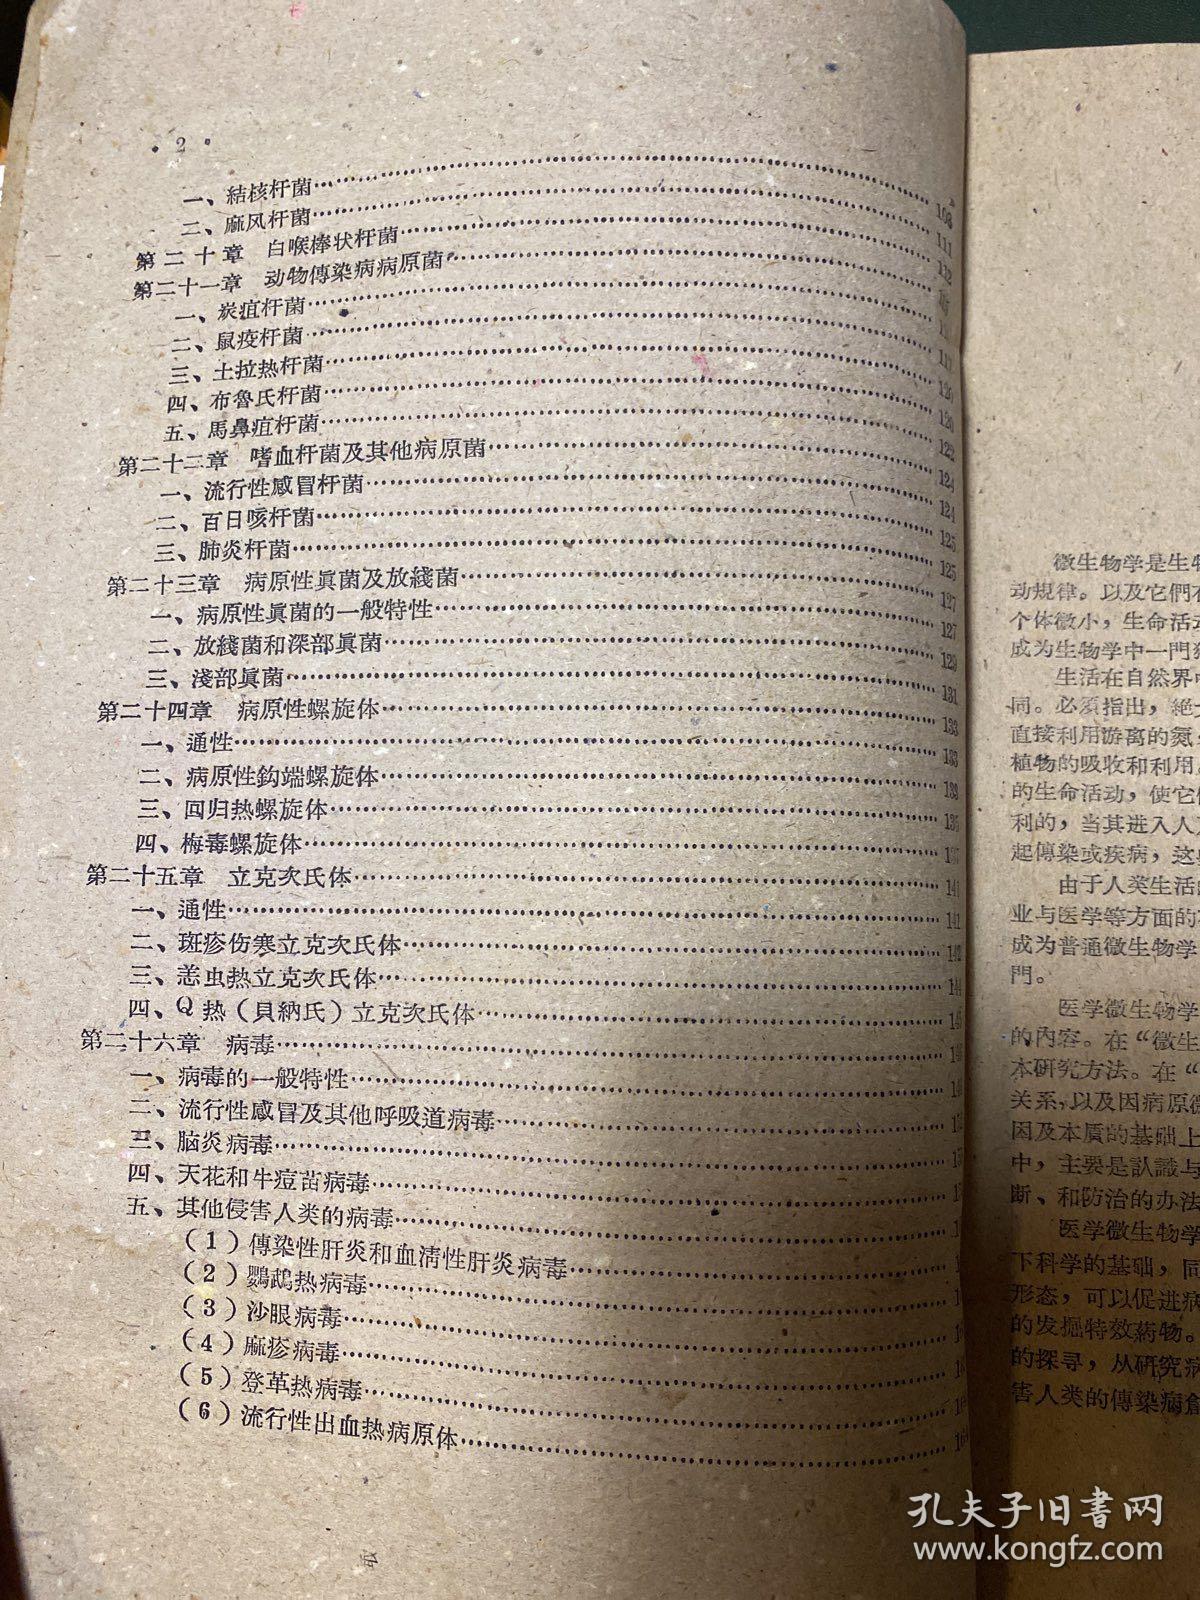 · 2 ·
一、結核杆菌 108
二、麻风杆菌 111
第二十章 白喉棒状杆菌 112
第二十一章 动物傳染病病原菌
一、炭疽杆菌
二、鼠疫杆菌 117
三、土拉热杆菌 120
四、布魯氏杆菌 120
五、馬鼻疽杆菌 122
第二十二章 嗜血杆菌及其他病原菌 124
一、流行性感冒杆菌 124
二、百日咳杆菌 125
三、肺炎杆菌 125
第二十三章 病原性眞菌及放綫菌 127
一、病原性眞菌的一般特性 127
二、放綫菌和深部眞菌 129
三、淺部眞菌 131
第二十四章 病原性螺旋体 133
一、通性 133
二、病原性鈎端螺旋体
三、回归热螺旋体
四、梅毒螺旋体
第二十五章 立克次氏体 141
一、通性 141
二、斑疹伤寒立克次氏体 142
三、恙虫热立克次氏体 144
四、Q热（貝納氏）立克次氏体
第二十六章 病毒
一、病毒的一般特性
二、流行性感冒及其他呼吸道病毒
三、脑炎病毒
四、天花和牛痘苗病毒
五、其他侵害人类的病毒
（1）傳染性肝炎和血清性肝炎病毒
（2）鸚鵡热病毒
（3）沙眼病毒
（4）麻疹病毒
（5）登革热病毒
（6）流行性出血热病原体
微生物学是生
动规律。以及它們
个体微小，生命活
成为生物学中一門
生活在自然界
同。必須指出，絶
直接利用游离的氮
植物的吸收和利用
的生命活动，使它
利的，当其进入人
起傳染或疾病，这
由于人类生活
业与医学等方面的
成为普通微生物学
門。
医学微生物学
的內容。在“微生
本研究方法。在“
关系，以及因病原
因及本質的基础上
中，主要是認識与
断、和防治的办法
医学微生物学
下科学的基础，同
形态，可以促进病
的发掘特效药物。
的探寻，从研究病
害人类的傳染病
孔夫子旧书网
www.kongfz.com